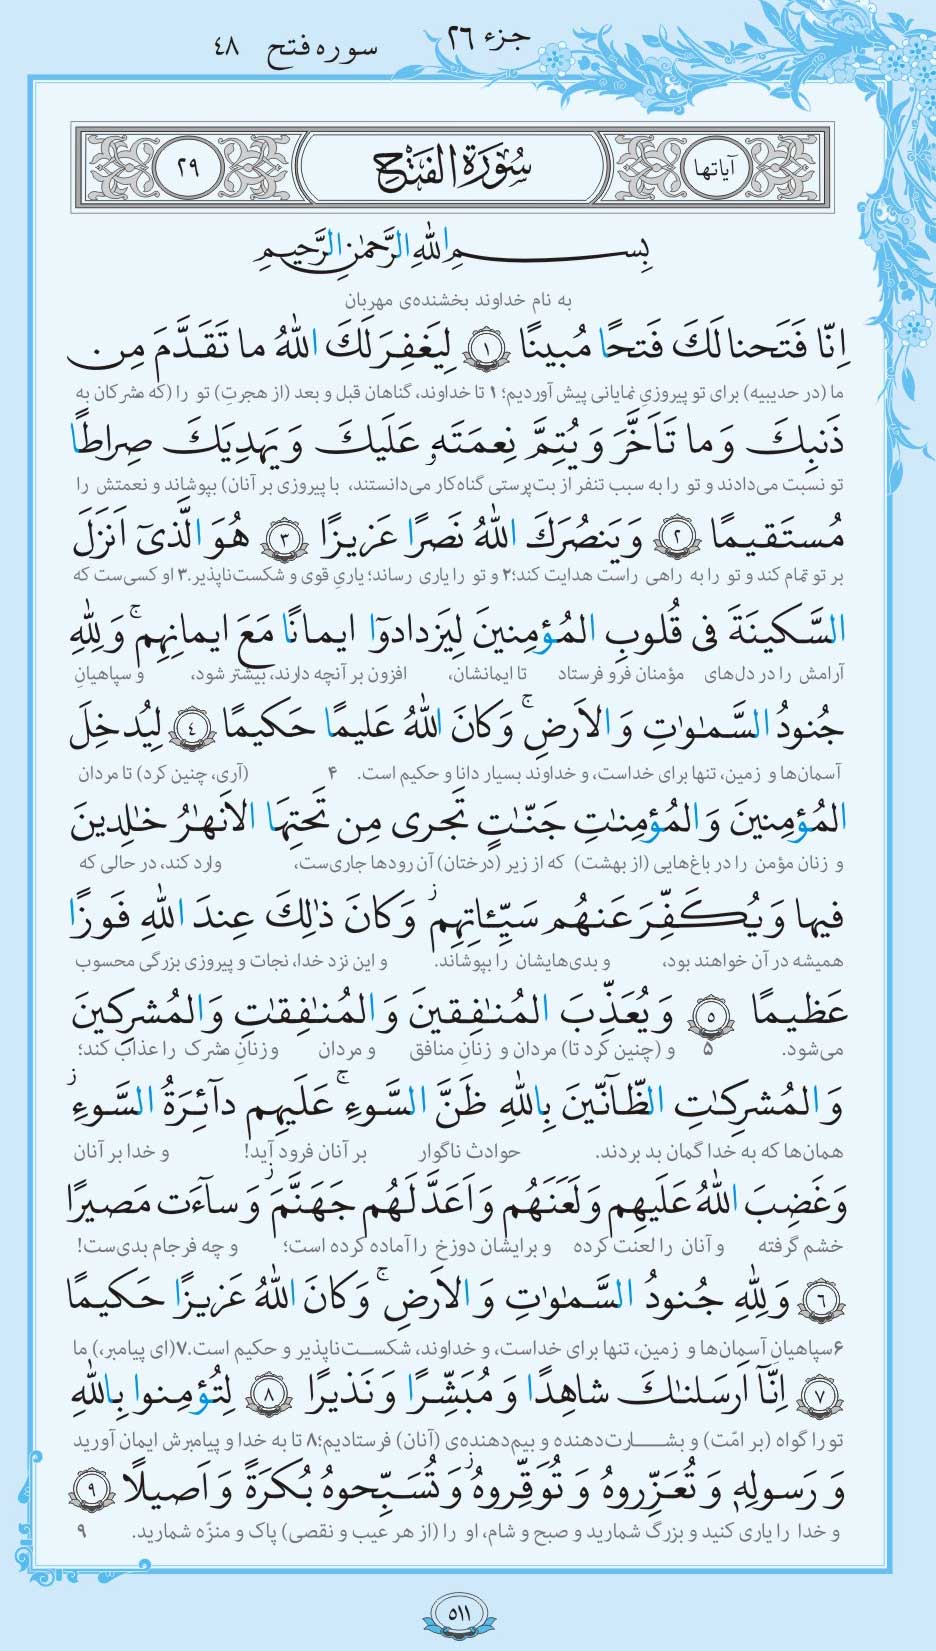 جزء ۲۶
سوره فتح ۴۸
آیاتها
سُورَةُ الفَتْحِ
۲۹
بِسمِ اللّٰهِ الرَّحمٰنِ الرَّحيمِ
به نام خداوند بخشنده‌ی مهربان
اِنّا فَتَحنا لَكَ فَتحًا مُبينًا ۱ لِيَغفِرَ لَكَ اللّٰهُ ما تَقَدَّمَ مِن
ما (در حدیبیه) برای تو پیروزیِ نمایانی پیش آوردیم؛ ۱ تا خداوند، گناهان قبل و بعد (از هجرتِ) تو را (که مشرکان به
ذَنبِكَ وَ ما تَاَخَّرَ وَ يُتِمَّ نِعمَتَهٖ عَلَيكَ وَ يَهدِيَكَ صِراطًا
تو نسبت می‌دادند و تو را به سبب تنفر از بت‌پرستی گناه‌کار می‌دانستند، با پیروزی بر آنان) بپوشاند و نعمتش را
مُستَقيمًا ۲ وَ يَنصُرَكَ اللّٰهُ نَصرًا عَزيزًا ۳ هُوَ الَّذىٓ اَنزَلَ
بر تو تمام کند و تو را به راهی راست هدایت کند؛ ۲ و تو را یاری رساند؛ یاریِ قوی و شکست‌ناپذیر. ۳ او کسی‌ست که
السَّكينَةَ فى قُلوبِ المُؤمِنينَ لِيَزدادوٓا ايمانًا مَعَ ايمانِهِم ۚ وَ لِلّٰهِ
آرامش را در دل‌های مؤمنان فرو فرستاد تا ایمانشان، افزون بر آنچه دارند، بیشتر شود، و سپاهیانِ
جُنودُ السَّمٰوٰتِ وَ الاَرضِ ۚ وَ كانَ اللّٰهُ عَليمًا حَكيمًا ۴ لِيُدخِلَ
آسمان‌ها و زمین، تنها برای خداست، و خداوند بسیار دانا و حکیم است. ۴ (آری، چنین کرد) تا مردان
المُؤمِنينَ وَ المُؤمِنٰتِ جَنّٰتٍ تَجرى مِن تَحتِهَا الاَنهٰرُ خٰلِدينَ
و زنان مؤمن را در باغ‌هایی (از بهشت) که از زیر (درختان) آن رودها جاری‌ست، وارد کند، در حالی که
فيها وَ يُكَفِّرَ عَنهُم سَيِّـٔاتِهِم ۚ وَ كانَ ذٰلِكَ عِندَ اللّٰهِ فَوزًا
همیشه در آن خواهند بود، و بدی‌هایشان را بپوشاند. و این نزد خدا، نجات و پیروزی بزرگی محسوب
عَظيمًا ۵ وَ يُعَذِّبَ المُنٰفِقينَ وَ المُنٰفِقٰتِ وَ المُشرِكينَ
می‌شود. ۵ و (چنین کرد تا) مردان و زنانِ منافق و مردان و زنانِ مشرک را عذاب کند؛
وَ المُشرِكٰتِ الظّآنّينَ بِاللّٰهِ ظَنَّ السَّوءِ ۚ عَلَيهِم دآئِرَةُ السَّوءِ ز
همان‌ها که به خدا گمان بد بردند. حوادث ناگوار بر آنان فرود آید! و خدا بر آنان
وَ غَضِبَ اللّٰهُ عَلَيهِم وَ لَعَنَهُم وَ اَعَدَّ لَهُم جَهَنَّمَ ز وَ سآءَت مَصيرًا
خشم گرفته و آنان را لعنت کرده و برایشان دوزخ را آماده کرده است؛ و چه فرجام بدی‌ست!
۶ وَ لِلّٰهِ جُنودُ السَّمٰوٰتِ وَ الاَرضِ ۚ وَ كانَ اللّٰهُ عَزيزًا حَكيمًا
۶ سپاهیانِ آسمان‌ها و زمین، تنها برای خداست، و خداوند، شکست‌ناپذیر و حکیم است. ۷ (ای پیامبر،) ما
۷ اِنّآ اَرسَلنٰكَ شاهِدًا وَ مُبَشِّرًا وَ نَذيرًا ۸ لِتُؤمِنوا بِاللّٰهِ
تو را گواه (بر امّت) و بشارت‌دهنده و بیم‌دهنده‌ی (آنان) فرستادیم؛ ۸ تا به خدا و پیامبرش ایمان آورید
وَ رَسولِهٖ وَ تُعَزِّروهُ وَ تُوَقِّروهُ ز وَ تُسَبِّحوهُ بُكرَةً وَ اَصيلًا ۹
و خدا را یاری کنید و بزرگ شمارید و صبح و شام، او را (از هر عیب و نقصی) پاک و منزّه شمارید. ۹
۵۱۱